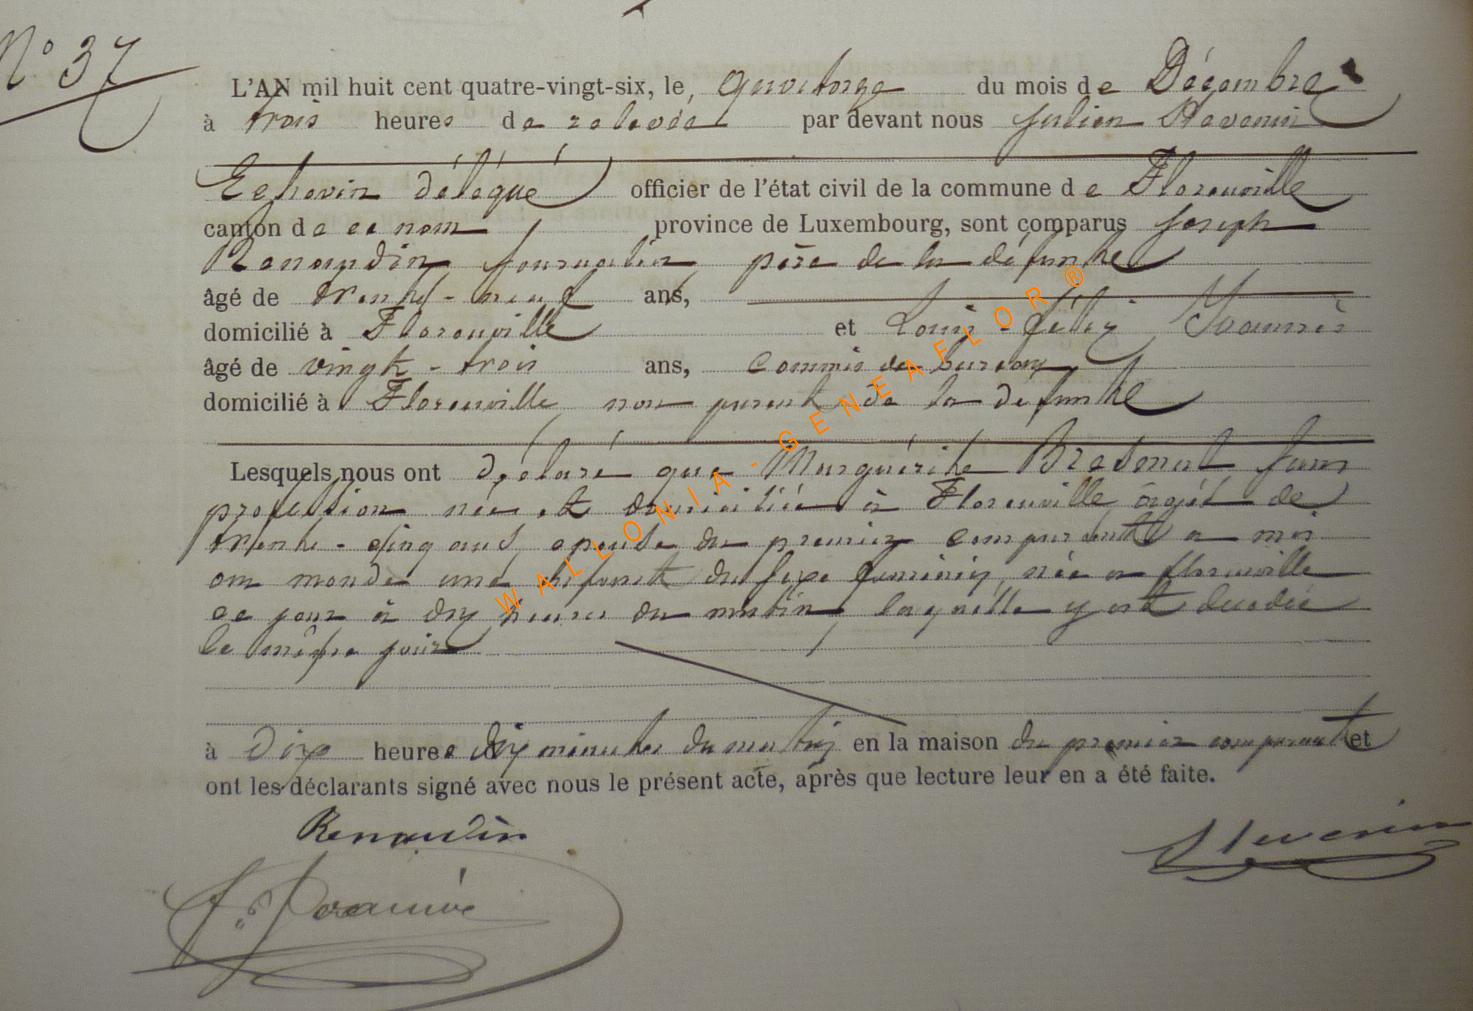 N° 37
L'AN mil huit cent quatre-vingt-six, le quatorze du mois de Décembre
à trois heures de relevée par devant nous Julien
Echevin délégué officier de l'état civil de la commune de Florenville
canton de ce nom province de Luxembourg, sont comparus Joseph
Renaudin journalier père de la défunte
âgé de trente-neuf ans,
domicilié à Florenville et Louis-Félix
âgé de vingt-trois ans, commis de bureau
domicilié à Florenville non parent de la défunte
Lesquels nous ont déclaré que Marguérite sans
profession née et domiciliée à Florenville âgée de
trente-cinq ans épouse du premier comparant a mis
au monde une enfant du sexe féminin, née à florenville
ce jour à dix heures du matin, laquelle y est décédée
le même jour
à Dix heures dix minutes du matin en la maison du premier comparant et
ont les déclarants signé avec nous le présent acte, après que lecture leur en a été faite.
Renaudin
WALLONIA-GENEAFLOR®